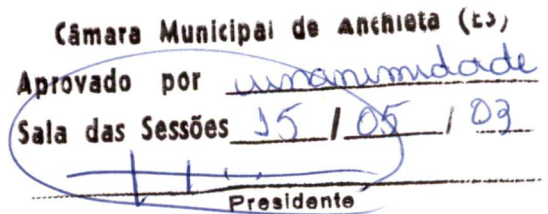 Câmara Municipal de Anchieta (ES)
Aprovado por unanimidade
Sala das Sessões 15 / 05 / 03
Presidente